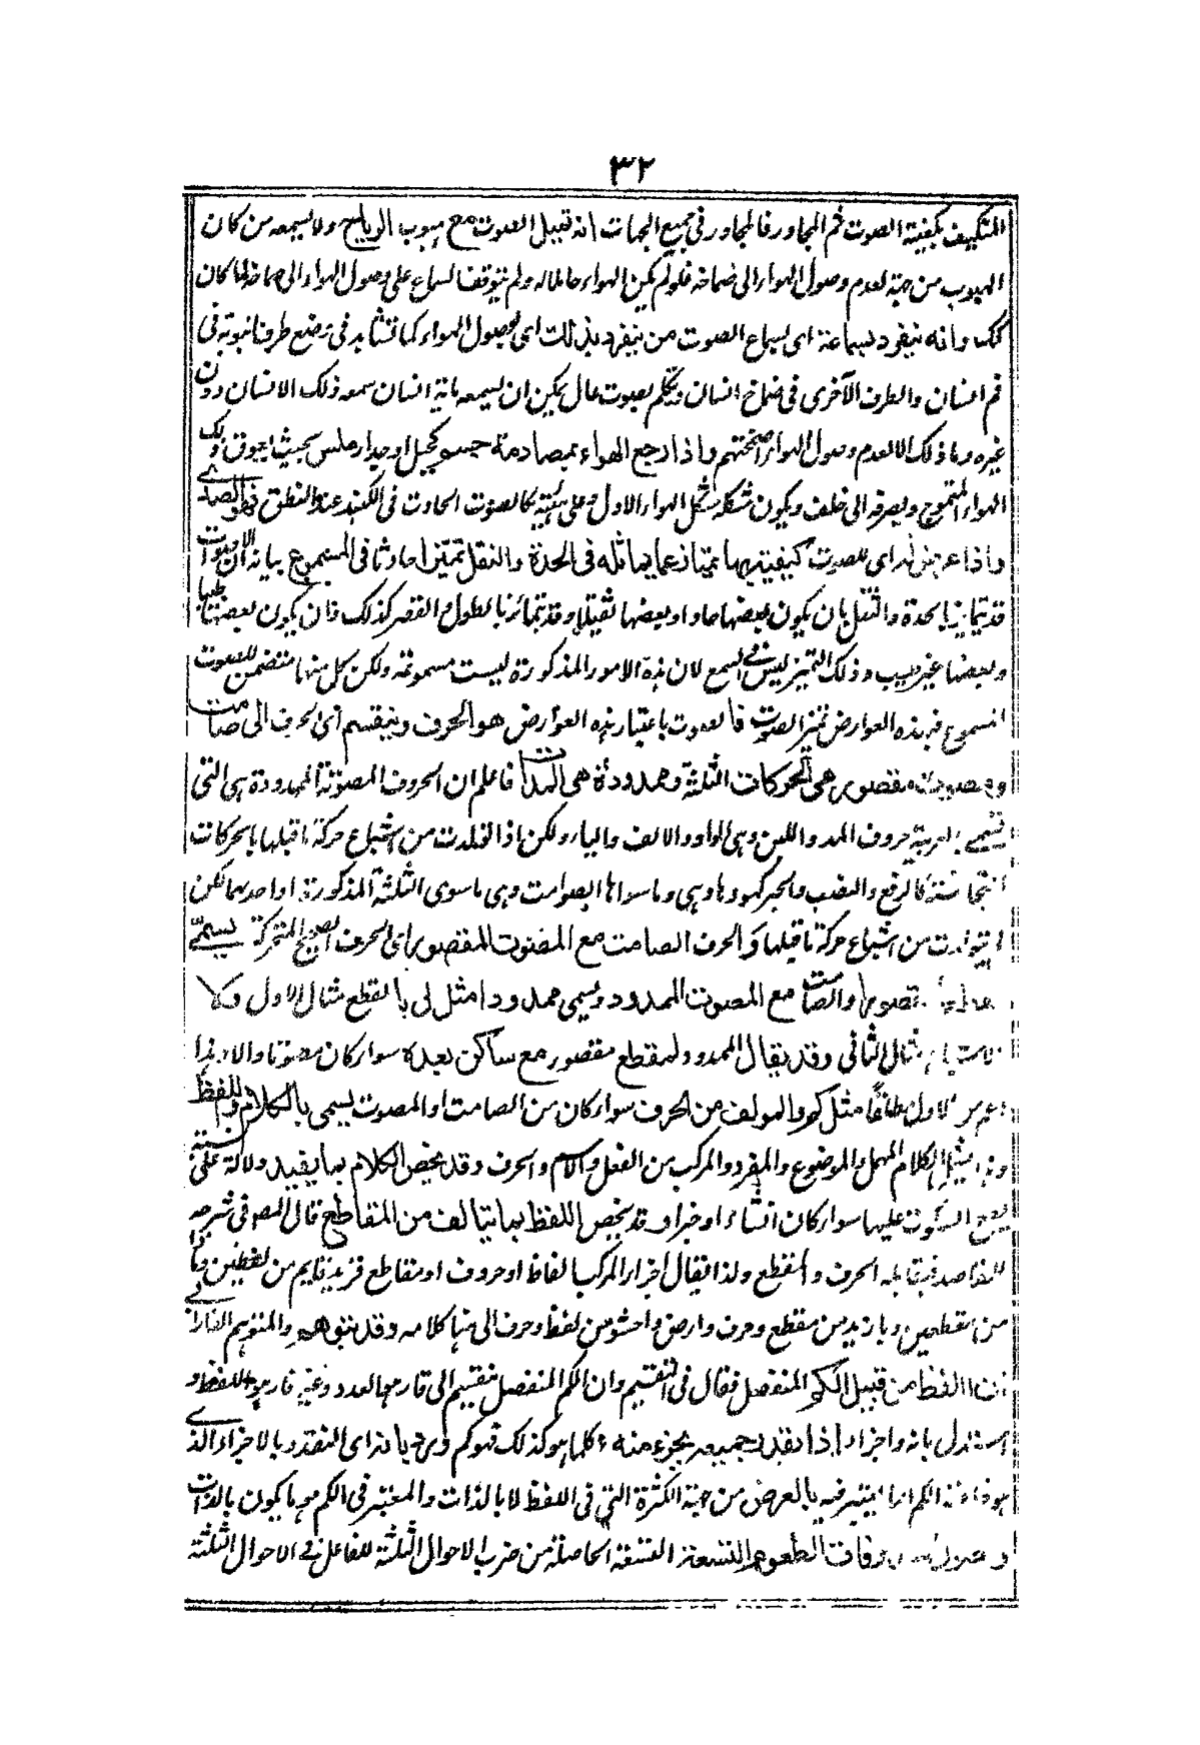 ٣٢
المتكيف بكيفية الصوت ثم المجاور فالمجاور في جميع الجهات انه تميل الصوت مع هبوب الرياح ولا يسمعه من كان
الهبوب من جهة لعدم وصول الهواء الى ضماخه فلو لم يكن الهواء حاملا له ولم يتوقف السماع على وصول الهواء الى صماخ لما كان
كك وانه ينفرد بسماعة اى بسماع الصوت من ينفرد بذلك اى بحصول الهواء كما تشاهد فى وضع طرف انبوبة فى
فم انسان والطرف الآخرى فى ضماخ انسان ويتكلم بصوت عال يمكن ان يسمعه ماية انسان سمعه ذلك الانسان دون
غيره وما ذلك الا لعدم وصول الهواء اصمختهم واذا رجع الهواء بمصادمة جسم كجبل او جدار ملس بحيث يعوق ذلك
الهواء المتموج ويصرفه الى خلف ويكون شكله شكل الهواء الاول وعلى هيئته كالصوت الحادث فى الگنبد عند النطق فهو الصدى
واذا عرض له اى للصوت كيفية بها يمتاز عما يماثله فى الحدة والثقل تميزا حادثا فى المسموع بيانه ان الاصوات
قد تمايز بالحدة والثقل بان يكون بعضها حادا وبعضها ثقيلا وقد تمايز بالطول والقصر كذلك وان يكون بعضها طيبا
وبعضها غير طيب وذلك التميز ليس فى السمع لان هذه الامور المذكورة ليست مسموعة ولكن كل منها متضمن للصوت
المسموع فبهذه العوارض تميز الصوت فالصوت باعتبار هذه العوارض هو الحرف وينقسم اى الحرف الى صامت
ومصوت مقصور هى الحركات الثلثة وممدودة هى المدات فاعلم ان الحروف المصوتة الممدودة هى التى
تسمى بالعربية حروف المد واللين وهى الواو والالف والياء ولكن اذا تولدت من اشباع حركة ما قبلها بالحركات
المتجانسة كالرفع والنصب والجر كهودها وهى وما سواها الصوامت وهى ما سوى الثلثة المذكورة او احدهما لكن
لا يتولدت من اشباع حركة ما قبلها والحرف الصامت مع المصوت المقصور اى الحرف الصحيح المتحركة يسمى
مقصورا والصامت مع المصوت الممدود ويسمى ممدودا مثل لى بالقطع مثال الاول وكلا
مثال الثانى وقد يقال الممدود لمقطع مقصور مع ساكن بعده سواء كان مصوتا والا وهذا
اعم من الاول مطلقا مثل كو والمولف من الحرف سواء كان من الصامت او المصوت يسمى بالكلام واللفظ
وهذا يشمل الكلام المهمل والموضوع والمفرد والمركب من الفعل والاسم والحرف وقد يخص الكلام بما يفيد دلالة على نسبة
يصح السكوت عليها سواء كان انشاء او خبرا وقد يخص اللفظ بما يتالف من المقاطع قال المصـ فى شرحه
للمقاصد فيقابله الحرف والمقطع ولذا يقال اجزاء المركب الفاظ او حروف او مقاطع فزيد قايم من لفظين وانا
من مقطعين ويا زيد من مقطع وحرف وارض واحشو من لفظ وحرف الى هنا كلامه وقد يتوهم والمتوهم الفارابى
ان اللفظ من قبيل الكم المنفصل فقال فى التقسيم وان الكم المنفصل ينقسم الى قار هو العدد وغير قار هو اللفظ و
استدل بانه واجزاء اذا يقدر جميعه بجزء منه وكلما هو كذلك فهو كم ورد بان اى التقدر بالاجزاء الذى
هو خاصة الكم انما يعتبر فيه بالعرض من جهة الكثرة التى فى اللفظ لا بالذات والمعتبر فى الكم هو ما يكون بالذات
واصول المذوقات الطعوم التسعة التسعة الحاصلة من ضرب الاحوال الثلثة للفاعل فى الاحوال الثلثة